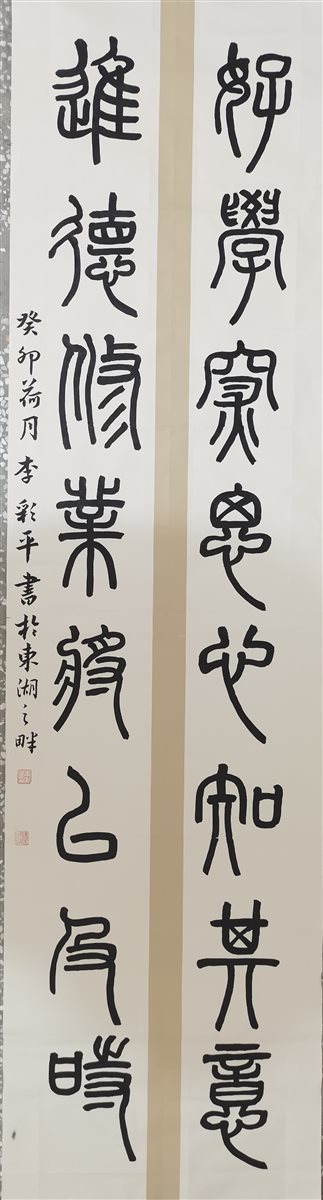 好學深思心知其意
進德修業將以及時
癸卯荷月李彩平書於東湖之畔